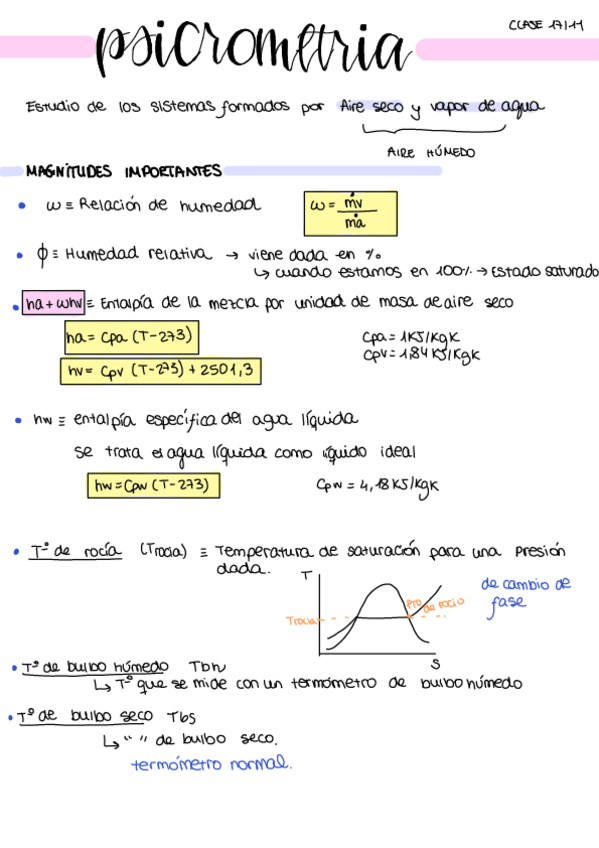 psicrometria
CLASE 17/11
Estudio de los sistemas formados por Aire seco y vapor de agua
AIRE HÚMEDO
MAGNITUDES IMPORTANTES
• ω ≡ Relación de humedad ω = ṁv / ṁa
• ϕ ≡ Humedad relativa → viene dada en %
↳ cuando estamos en 100% → Estado saturado
• ha + ωhv ≡ Entalpía de la mezcla por unidad de masa de aire seco
ha = Cpa (T-273) Cpa = 1KJ/KgK
hv = Cpv (T-273) + 2501,3 Cpv = 1,84 KJ/KgK
• hw ≡ entalpía específica del agua líquida
se trata el agua líquida como líquido ideal
hw = Cpw (T-273) Cpw = 4,18 KJ/KgK
• Tº de rocía (Trocia) ≡ Temperatura de saturación para una presión
dada.
T
de cambio de
fase
Pto de rocio
Trocia
S
• Tº de bulbo húmedo Tbh
↳ Tº que se mide con un termómetro de bulbo húmedo
• Tº de bulbo seco Tbs
↳ " " de bulbo seco.
termómetro normal.